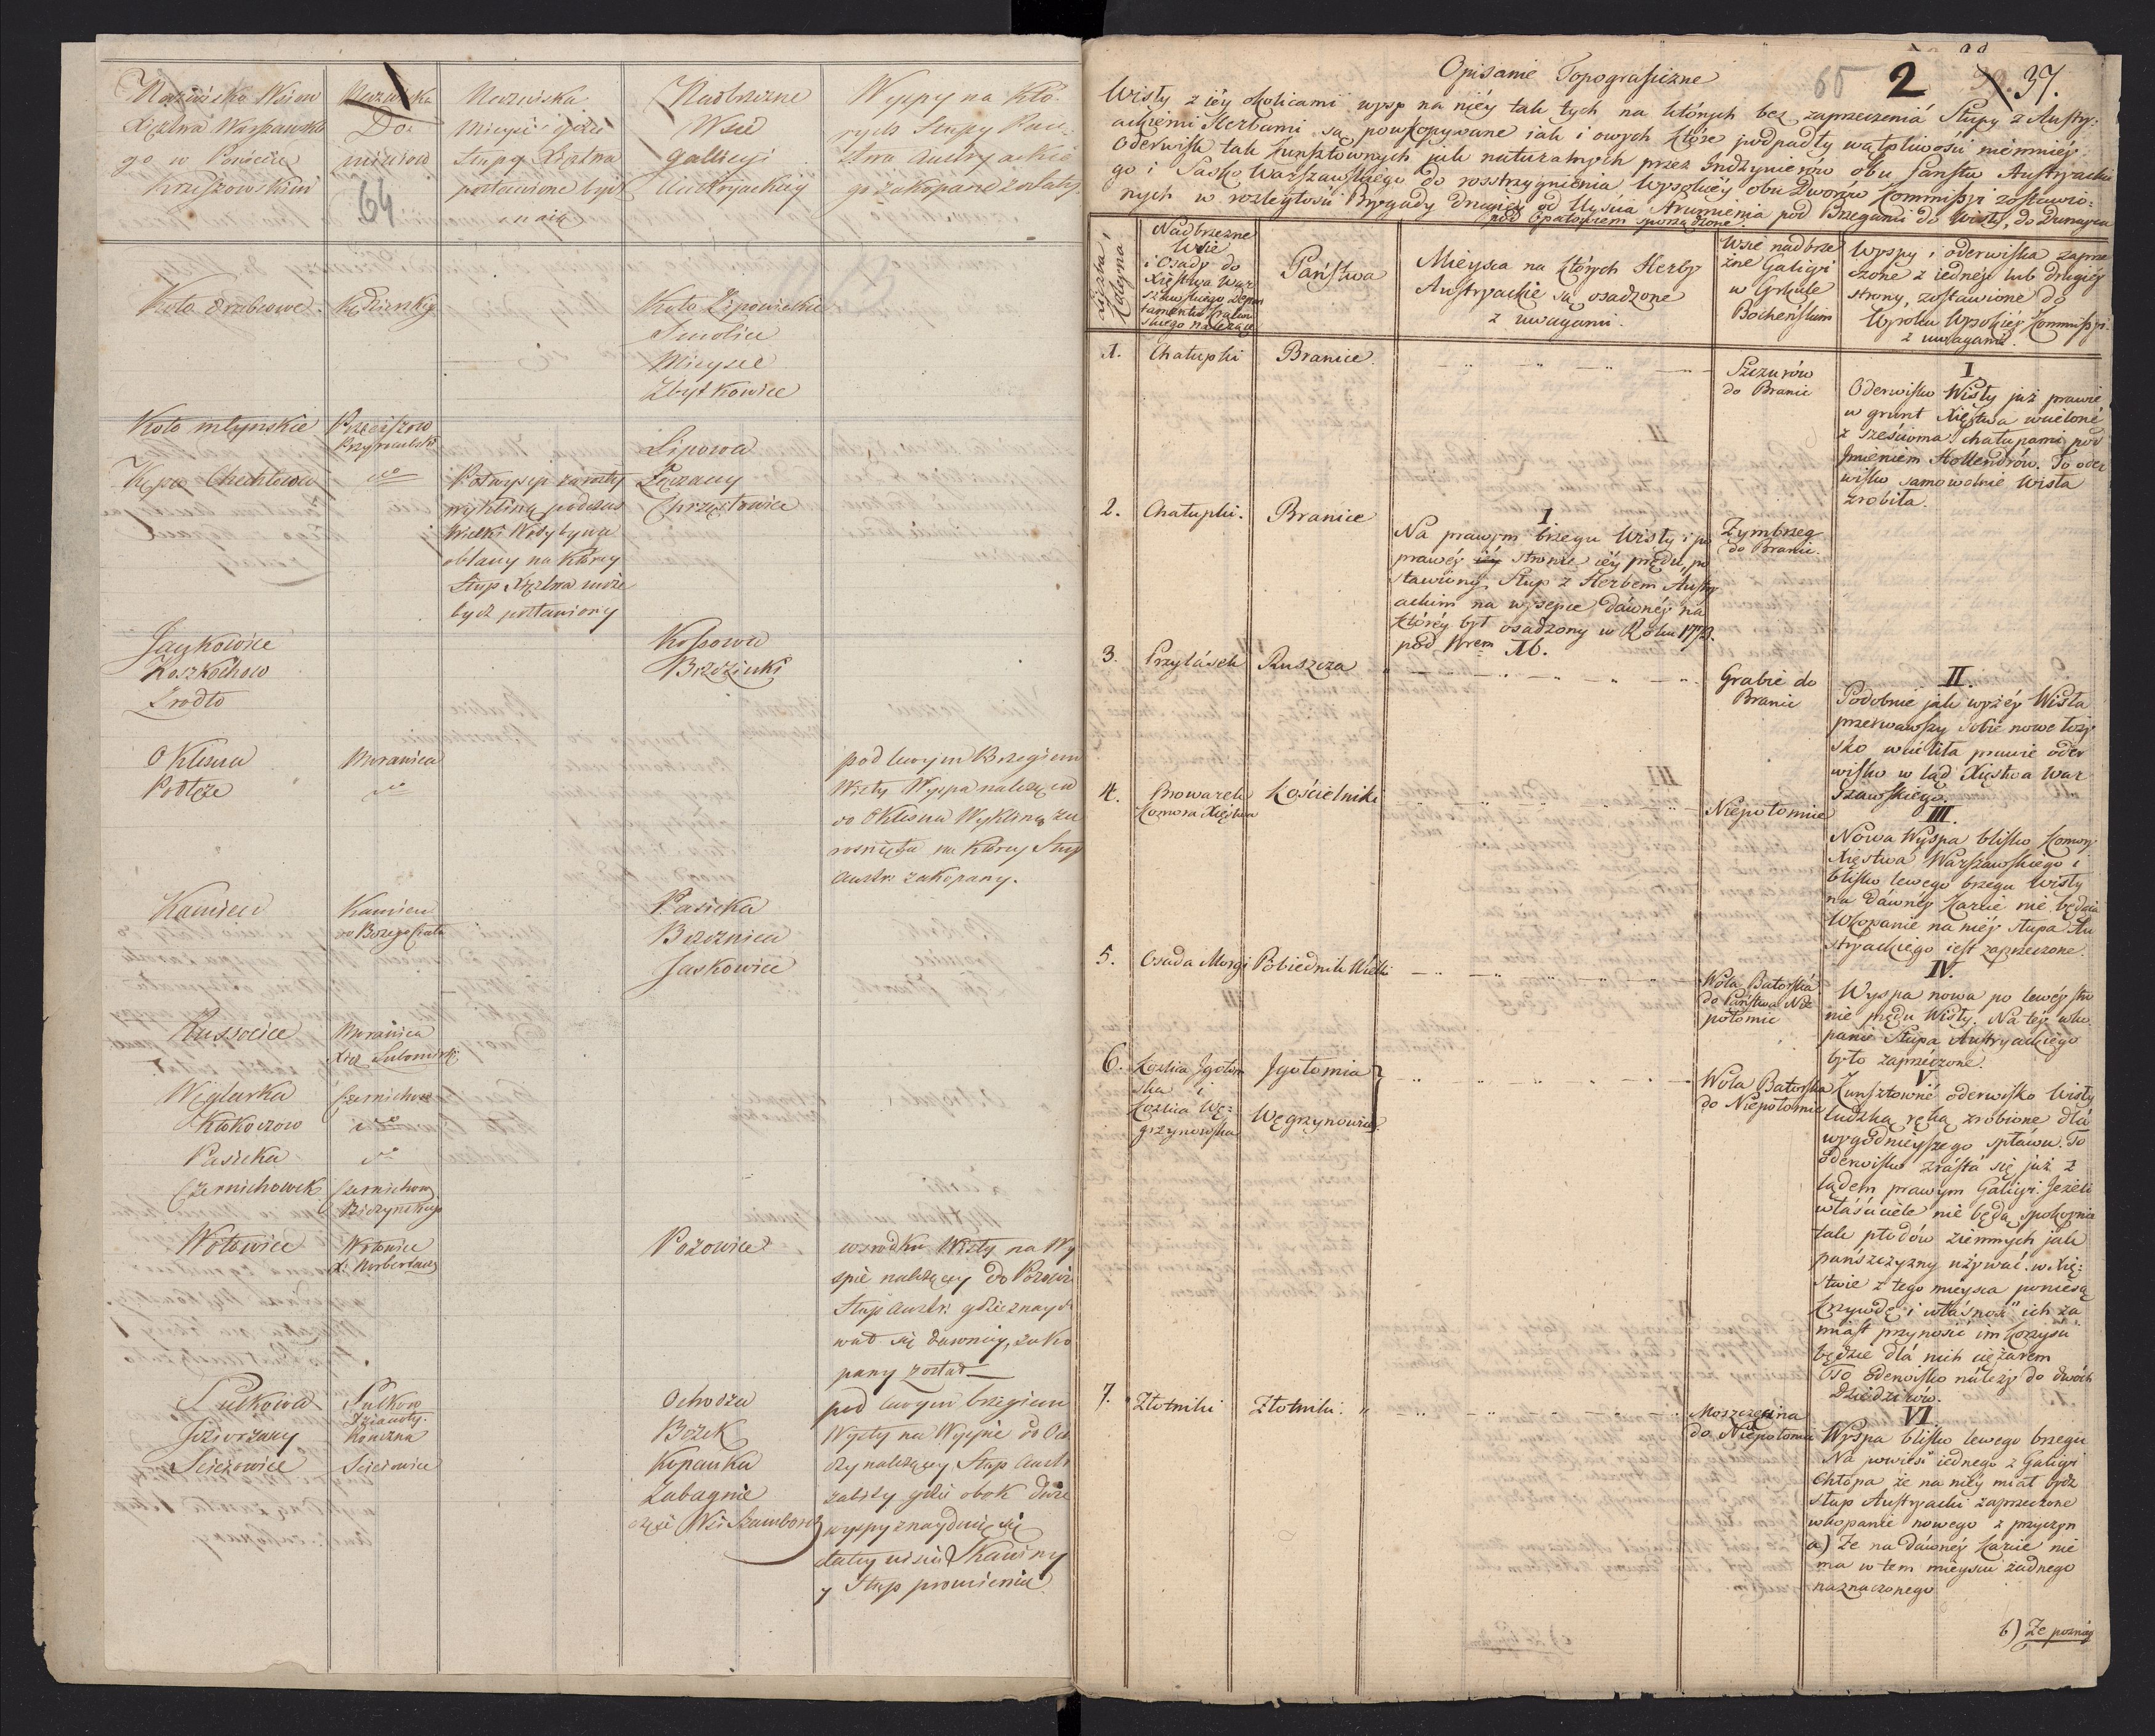 Nazwiska Wsiow
Xięztwa Warszawskie
go w Powiecie
Krzeszowskim
Nazwiska
Do:
miniow
64
Nazwiska
Mieysc gdzie
Słupy Xięztwa
postawione bydź
maią
Nadbrzezne
Wsie
Gallicyi
Austryackiey
Wyspy na Któ-
rych Słupy Pań-
stwa Austryackie
go zakopane zostały
Koło Grabiowe
Kolo Lipowieckie
Smolice
Mieysce
Zbytkowice
Koło młynskie
Lipowa
Kępa Chechlowa
do
Łączany
Chrząstowice
Półwysep zarosły
wykliną podczas
Wielki Wody bywa
oblany na którey
Słup Xięztwa może
bydz postawiony
Jaszkowice
Roszkochow
Zrodło
Kossowa
Brzezinki
Okleśna
Podłęże
Moranica
do
pod lewym Brzegiem
Wisły Wyspa należąca
do Okleśna Wykliną za
rosnięta na którey Słup
Austr: zakopany.
Kamien
Kamien
do Bozego Ciała
Pasieka
Brzeznica
Jaskowice
Russocice
Moranica
Xcia Lubomirs:
Węglarka
Kłokoczow
Pasieka
Czernichowek
Czernichow
do
do
Czernichow
Wołowice
Wołowice
X: Norbertanek
Pozowice
wsrodku Wisły na Wy
spie należącey do Pozowic
Słup Austr: gdzie znaydo
wał się dawniey, zako
pany został
Sulkowa
Jeziorzany
Scieiowice
Sulkow
Dzianoty
Konczna
Scieiowice
Ochodza
Bożek
Kopanka
Zabagnie
częsc Wsi Samborek
pod lewym brzegiem
Wisły na Wyspie do Och
dzy należącey Słup Austr
zabity gdzie obok dwie
wyspy znayduią się
daley uiscie Skawiny
y Słup promienia
65 2 37.
Opisanie Topograficzne
Wisły z iéy okolicami wysp na niéy tak tych na których bez zaprzeczenia Słupy z Austry-
ackiemi Herbami są powkopywane iak i owych które podpadły wątpliwości niemniéy
Oderwisk tak kunsztownych jak naturalnych przez Indzynierów obu Państw Austryackie
go i Sasko Warszawskiego do rosstrzygnienia Wysokiéy obu Dworów Kommissyi zostawio-
nych w rozległości Brygady Drugiéy od Uyścia Strumienia pod Brzegami do Wisły, do Dunayca
pod Opatowcem sporządzone.
Liczba Kolejna
Nadbrzezne
Wsie
i Osady do
Xięstwa War
szawskiego Depar
tamentu Krakow
skiego należące
Państwa
Mieysca na których Herby
Austryackie są osadzone
z uwagami.
Wsie nadbrze
żne Galicyi
w Cyrkule
Bocheńskim
Wyspy i oderwiska zaprze
czone z iednéy lub drugiéy
strony, zostawione do
Wyroku Wysokiéy Kommissyi
z uwagami.
1. Chałupki Branice
Szczurów
do Branic
I
Oderwisko Wisły już prawie
w grunt Xięstwa wcielone
z sześcioma chałupami pod
Jmieniem Hollendrów. To oder
wisko samowolnie Wisła
zrobiła.
2. Chałupki. Branice
I.
Na prawym brzegu Wisły i po
prawéy stronie iéy prądu, po
stawiony Słup z Herbem Austry
ackim na wysepce dáwnéy na
któréy był osadzony w Roku 1773.
pod Nrem 16.
Zymbrzeg
do Branic.
3. Przylásek Ruszcza
Grabie do
Branic
II.
Podobnie jak wyżéy Wisła
przerwawszy sobie nowe łoży
sko wcieliła prawie oder
wisko w ląd Xięstwa War
szawskiego.
4. Browarek
Komora Xięstwa
Kościelniki
Niepołomice
III.
Nowa Wyspa blisko Komory
Xięstwa Warszawskiego i
blisko lewego brzegu Wisły
na dáwnéy Karcie nie będąca
Wkopanie na niéy słupa Au
stryackiego iest zaprzeczone.
5. Osada Morgi Pobiednik Wielki
Wola Batorska
do Państwa Nie
połomic
IV.
Wyspa nowa po lewéy stro
nie prądu Wisły. Na téy wko
panie Słupa Austryackiego
było zaprzéczone.
6. Kozlica Igołom
ska i
Kozlica Wę-
grzynowska
Igołomia
Węgrzynowice
Wola Batorska
do Niepołomic
V.
Kunsztowné oderwisko Wisły
ludzką ręką zrobione dlá
wygodnieyszego spławu. To
oderwisko zrástá się już z
lądem prawym Galicyi. Jeżeli
właściciele nie będą spokoynie
tak płodów ziemnych jak
pańszczyzny używać w Xię-
stwie z tego mieysca poniesą
krzywdę i własność ich za
miast przynosić im korzyść
będzie dlá nich ciężarem
To oderwisko náleży do dwóch
Dziedziców.
7. Złotniki Złotniki.
Moszczenica
do Niepołomic
VI
Wyspa blisko lewego brzegu
Na powieść iednego z Galicyi
Chłopa że na niéy miał bydź
słup Austryacki zaprzeczone
wkopanie nowego z przyczyn
a) Że na dáwnéy Karcie nie
ma w tem mieyscu żadnego
naznaczonego
b) Że poznay